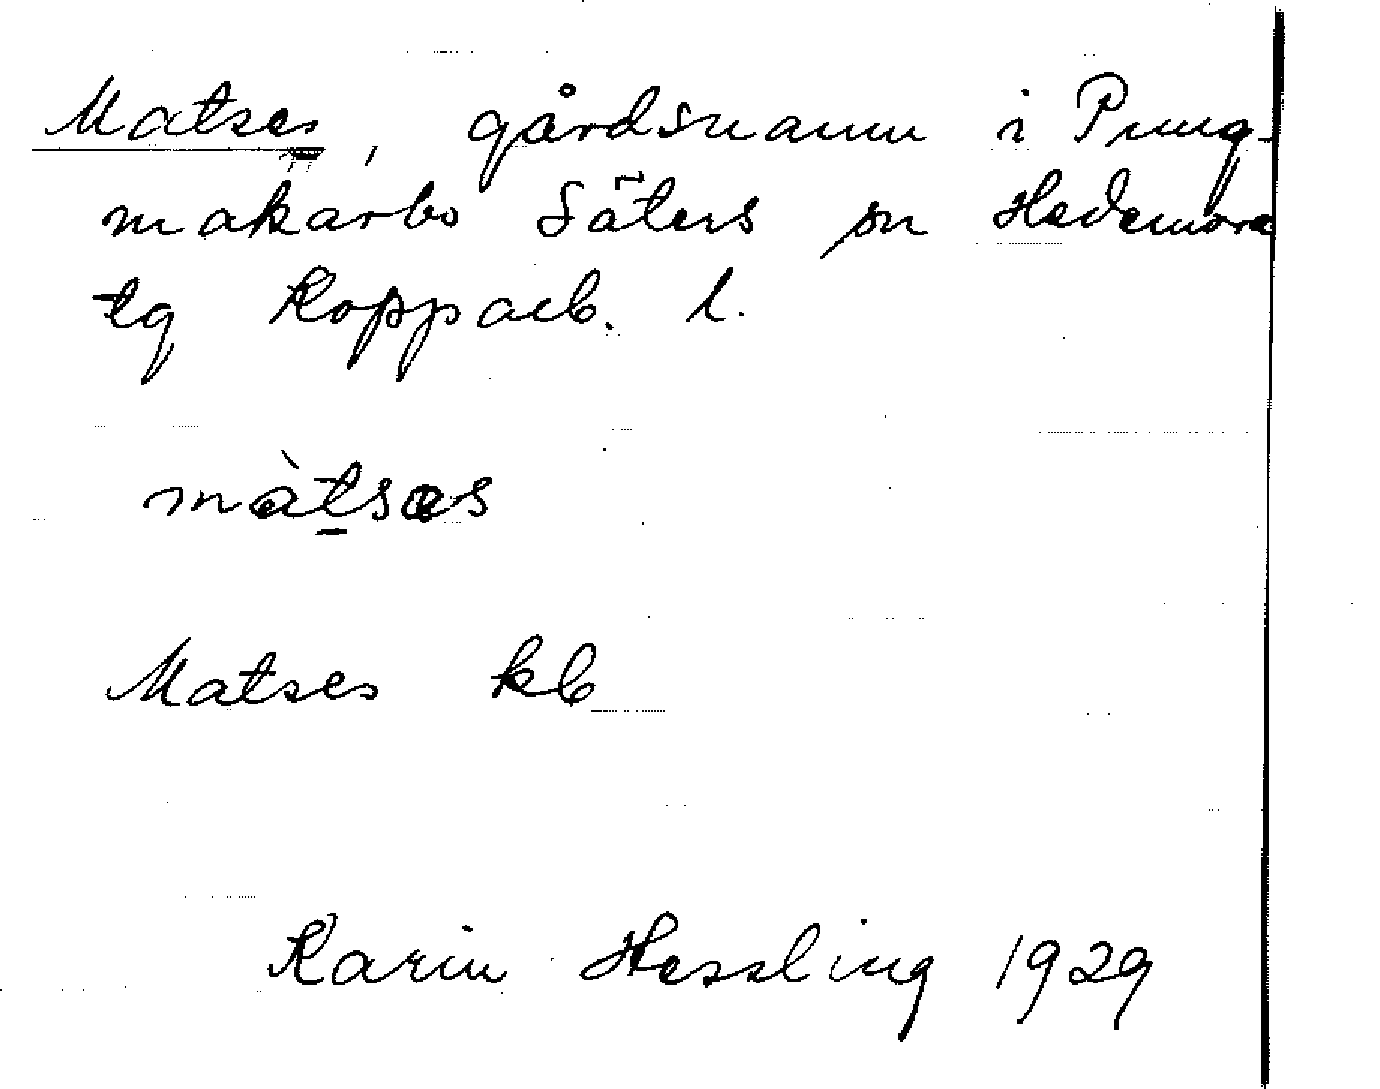 Matses, gårdsnamn i Pung-
makarbo Säters sn Hedemora
tg Kopparb. l.
màtsas
Matses kb
Karin Hessling 1929